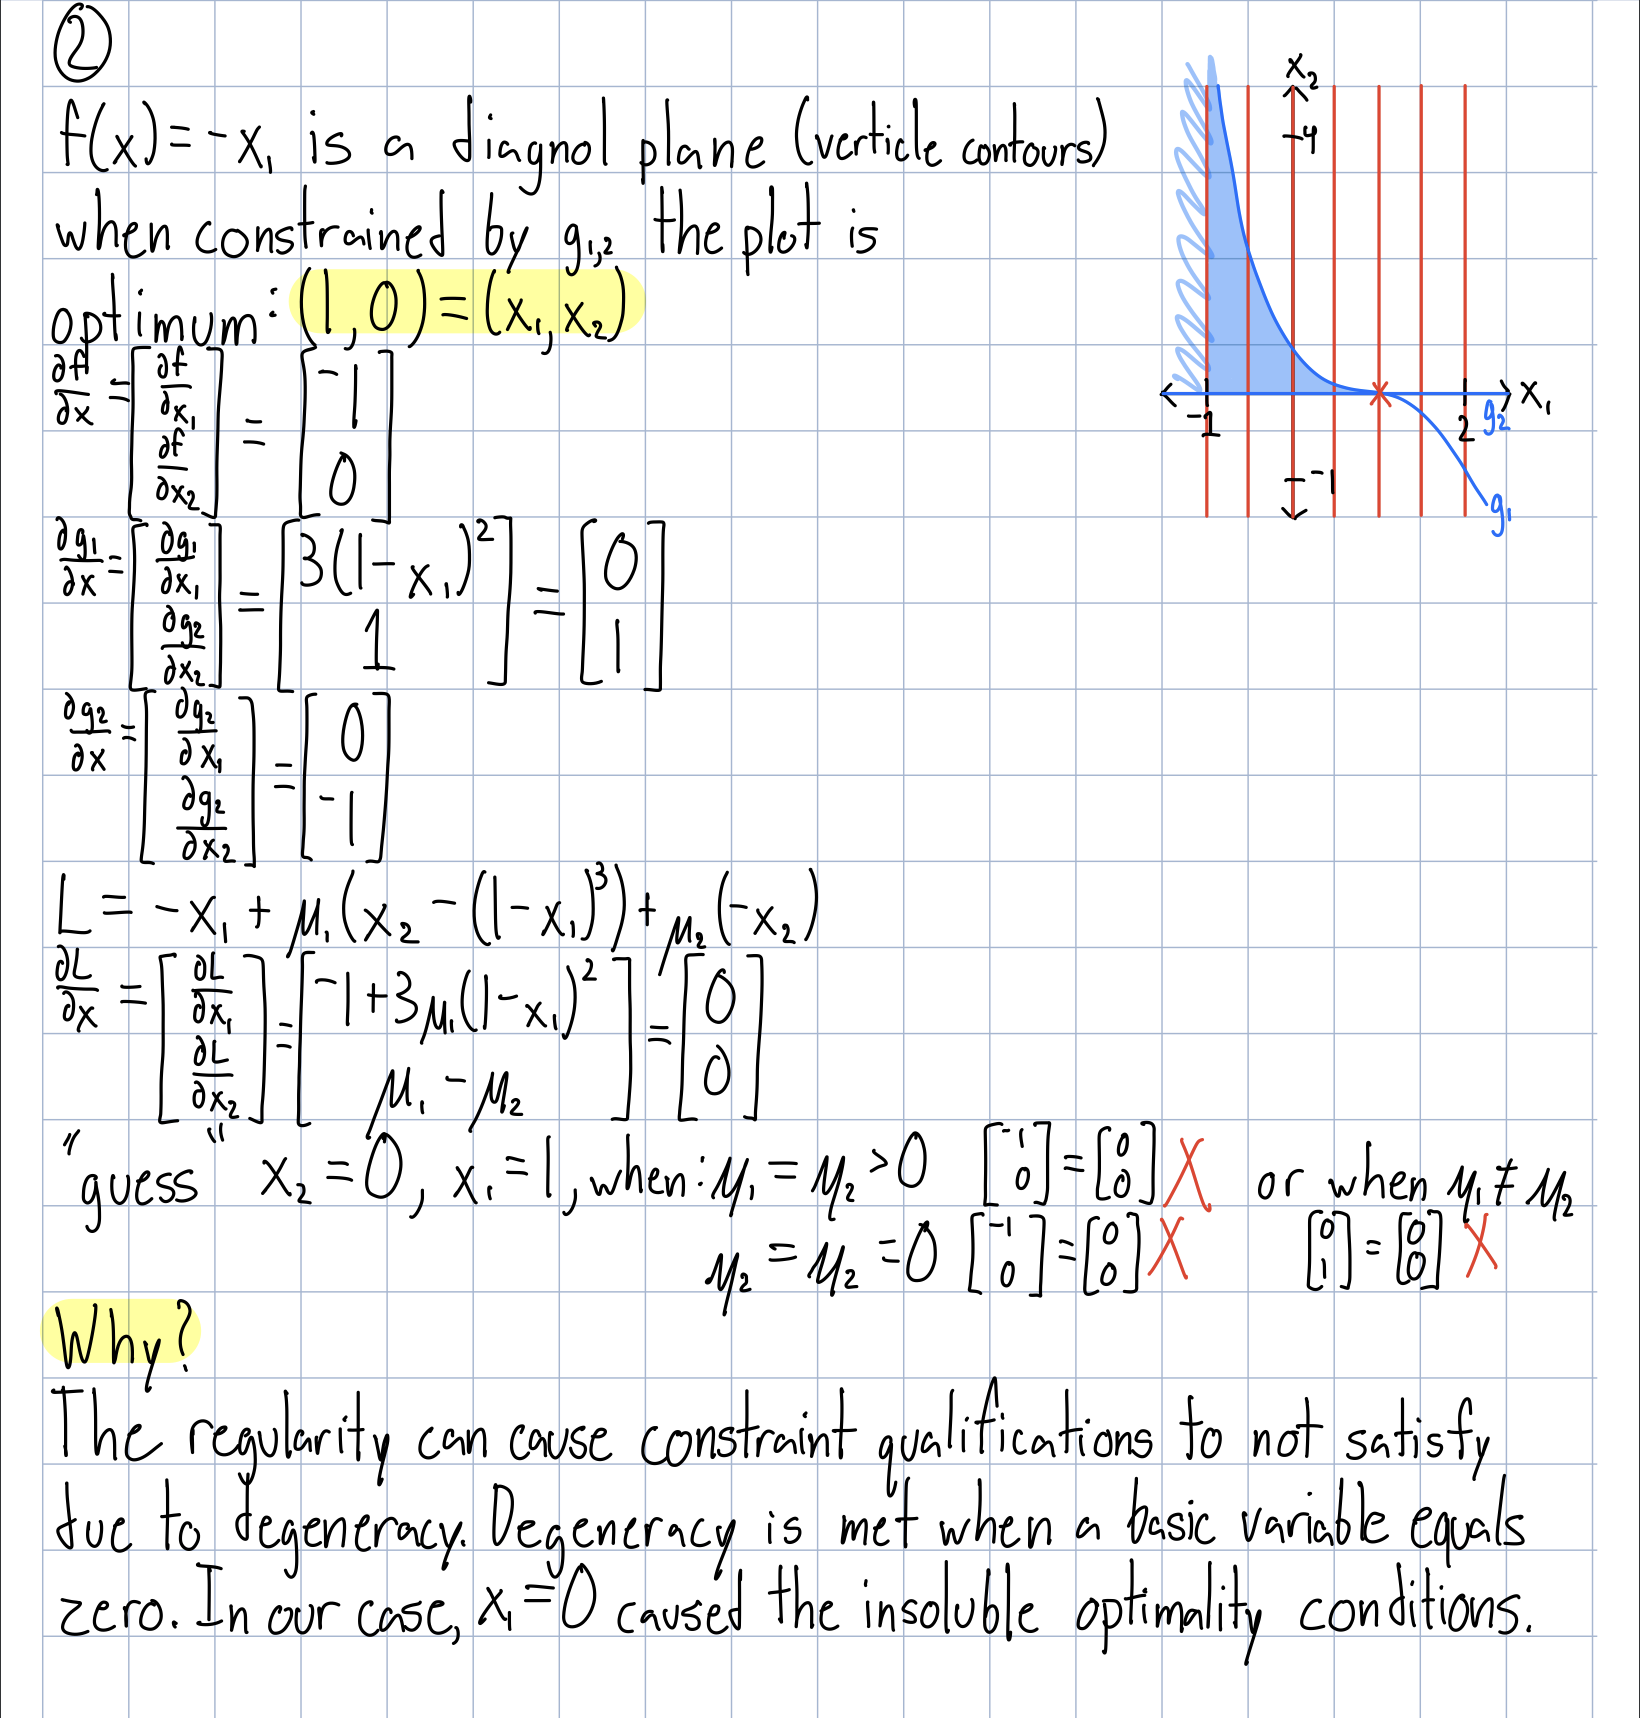 ②
f(x) = -x₁ is a diagnol plane (verticle contours)
when constrained by g₁,₂ the plot is
optimum: (1, 0) = (x₁, x₂)
∂f/∂x = [∂f/∂x₁ ; ∂f/∂x₂] = [-1 ; 0]
∂g₁/∂x = [∂g₁/∂x₁ ; ∂g₂/∂x₂] = [3(1-x₁)² ; 1] = [0 ; 1]
∂g₂/∂x = [∂g₂/∂x₁ ; ∂g₂/∂x₂] = [0 ; -1]
L = -x₁ + μ₁(x₂ - (1-x₁)³) + μ₂(-x₂)
∂L/∂x = [∂L/∂x₁ ; ∂L/∂x₂] = [-1+3μ₁(1-x₁)² ; μ₁ - μ₂] = [0 ; 0]
"guess" x₂ = 0, x₁ = 1, when: μ₁ = μ₂ > 0 [-1 ; 0] = [0 ; 0] X or when μ₁ ≠ μ₂
μ₂ = μ₂ = 0 [-1 ; 0] = [0 ; 0] X [0 ; 1] = [0 ; 0] X
Why?
The regularity can cause constraint qualifications to not satisfy
due to degeneracy. Degeneracy is met when a basic variable equals
zero. In our case, x₁ = 0 caused the insoluble optimality conditions.
x₂
4
x₁
-1
2
g₂
-1
g₁